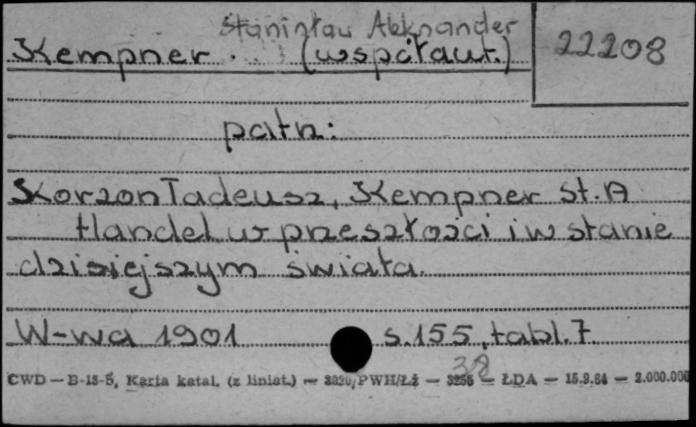 Stanisław Aleksander
Kempner . . (współaut.)
22208
patrz:
Korzon Tadeusz, Kempner St. A
Handel w przeszłości i w stanie
dzisiejszym świata.
W-wa 1901 s. 155, tabl. 7.
38
CWD — B-15-5, Karta katal. (z liniat.) — /PWH/Łż — 3255 — ŁDA — 15.9.64 — 2.000.000